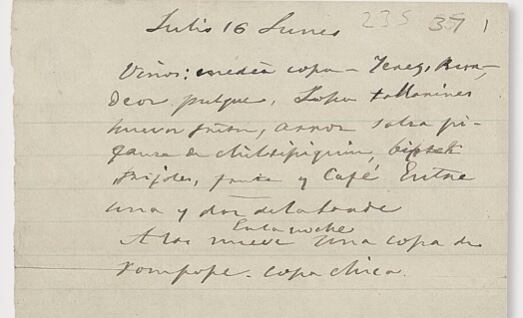 Julio 16 Lunes 235 371
Vinos: media copa - Jerez, Bur-
deos, pulque, Sopa tallarines
huevos fritos, arroz salsa pi-
cante de chilchipiquin, biftek
frijoles, fruta y Café Entre
una y dos de la tarde
En la noche
A las nueve una copa de
rompope. copa chica.